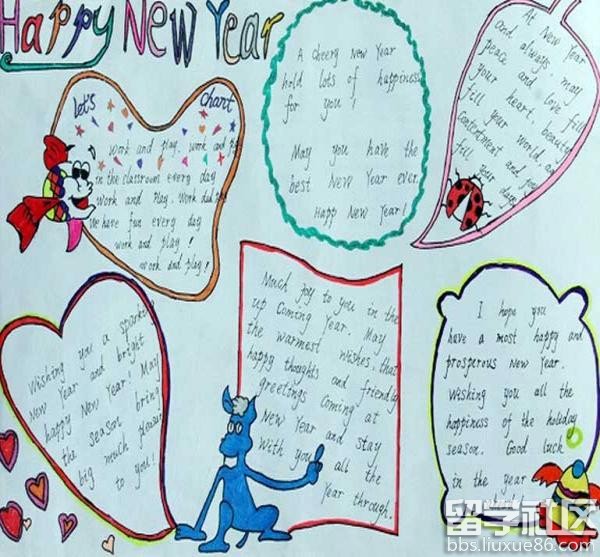 Happy New Year
Let's chant
Work and play, work and play
in the classroom every day
Work and play, work and play
We have fun every day
work and play!
Work and play!
A cheery New Year
hold lots of happiness
for you!
May you have the
best New Year ever.
Happy New Year!
At New Year
and always, may
peace and love fill
your heart, beauty
fill your world, and
contentment and joy
fill your days
Wishing you a sparkly
New Year and bright
happy New Year! May
the season bring
big much pleasure
to you!
Much joy to you in the
up coming Year. May
the warmest wishes, that
happy thoughts and friendly
greetings coming at
New Year and stay
with you all the
Year through.
I hope you
have a most happy and
prosperous New Year.
Wishing you all the
happiness of the holiday
season. Good luck
in the year
留学社区
bbs.liuxue86.com